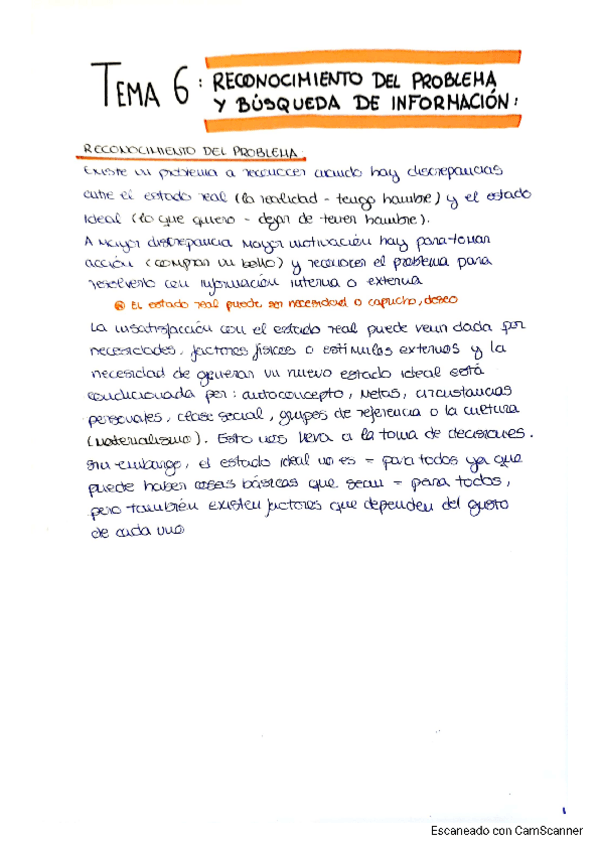 TEMA 6: RECONOCIMIENTO DEL PROBLEMA
Y BÚSQUEDA DE INFORMACIÓN:
RECONOCIMIENTO DEL PROBLEMA:
Existe un problema a reconocer cuando hay discrepancias
entre el estado real (la realidad - tengo hambre) y el estado
ideal (lo que quiero - dejar de tener hambre).
A mayor discrepancia mayor motivación hay para tomar
acción (comprar un bollo) y reconocer el problema para
resolverlo con información interna o externa
El estado real puede ser necesidad o capucho, deseo
La insatisfacción con el estado real puede venir dada por
necesidades, factores físicos o estímulos externos y la
necesidad de generar un nuevo estado ideal está
condicionada por: autoconcepto, metas, circustancias
personales, clase social, grupos de referencia o la cultura
(materialismo). Esto nos lleva a la toma de decisiones.
Sin embargo, el estado ideal no es = para todos ya que
puede haber cosas básicas que sean = para todos,
pero también existen factores que dependen del gusto
de cada uno
1
Escaneado con CamScanner